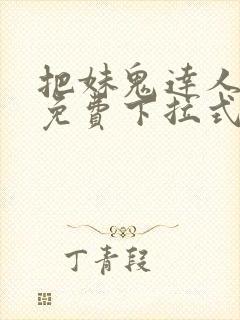 把妹鬼達人
免費下拉式
丁青段